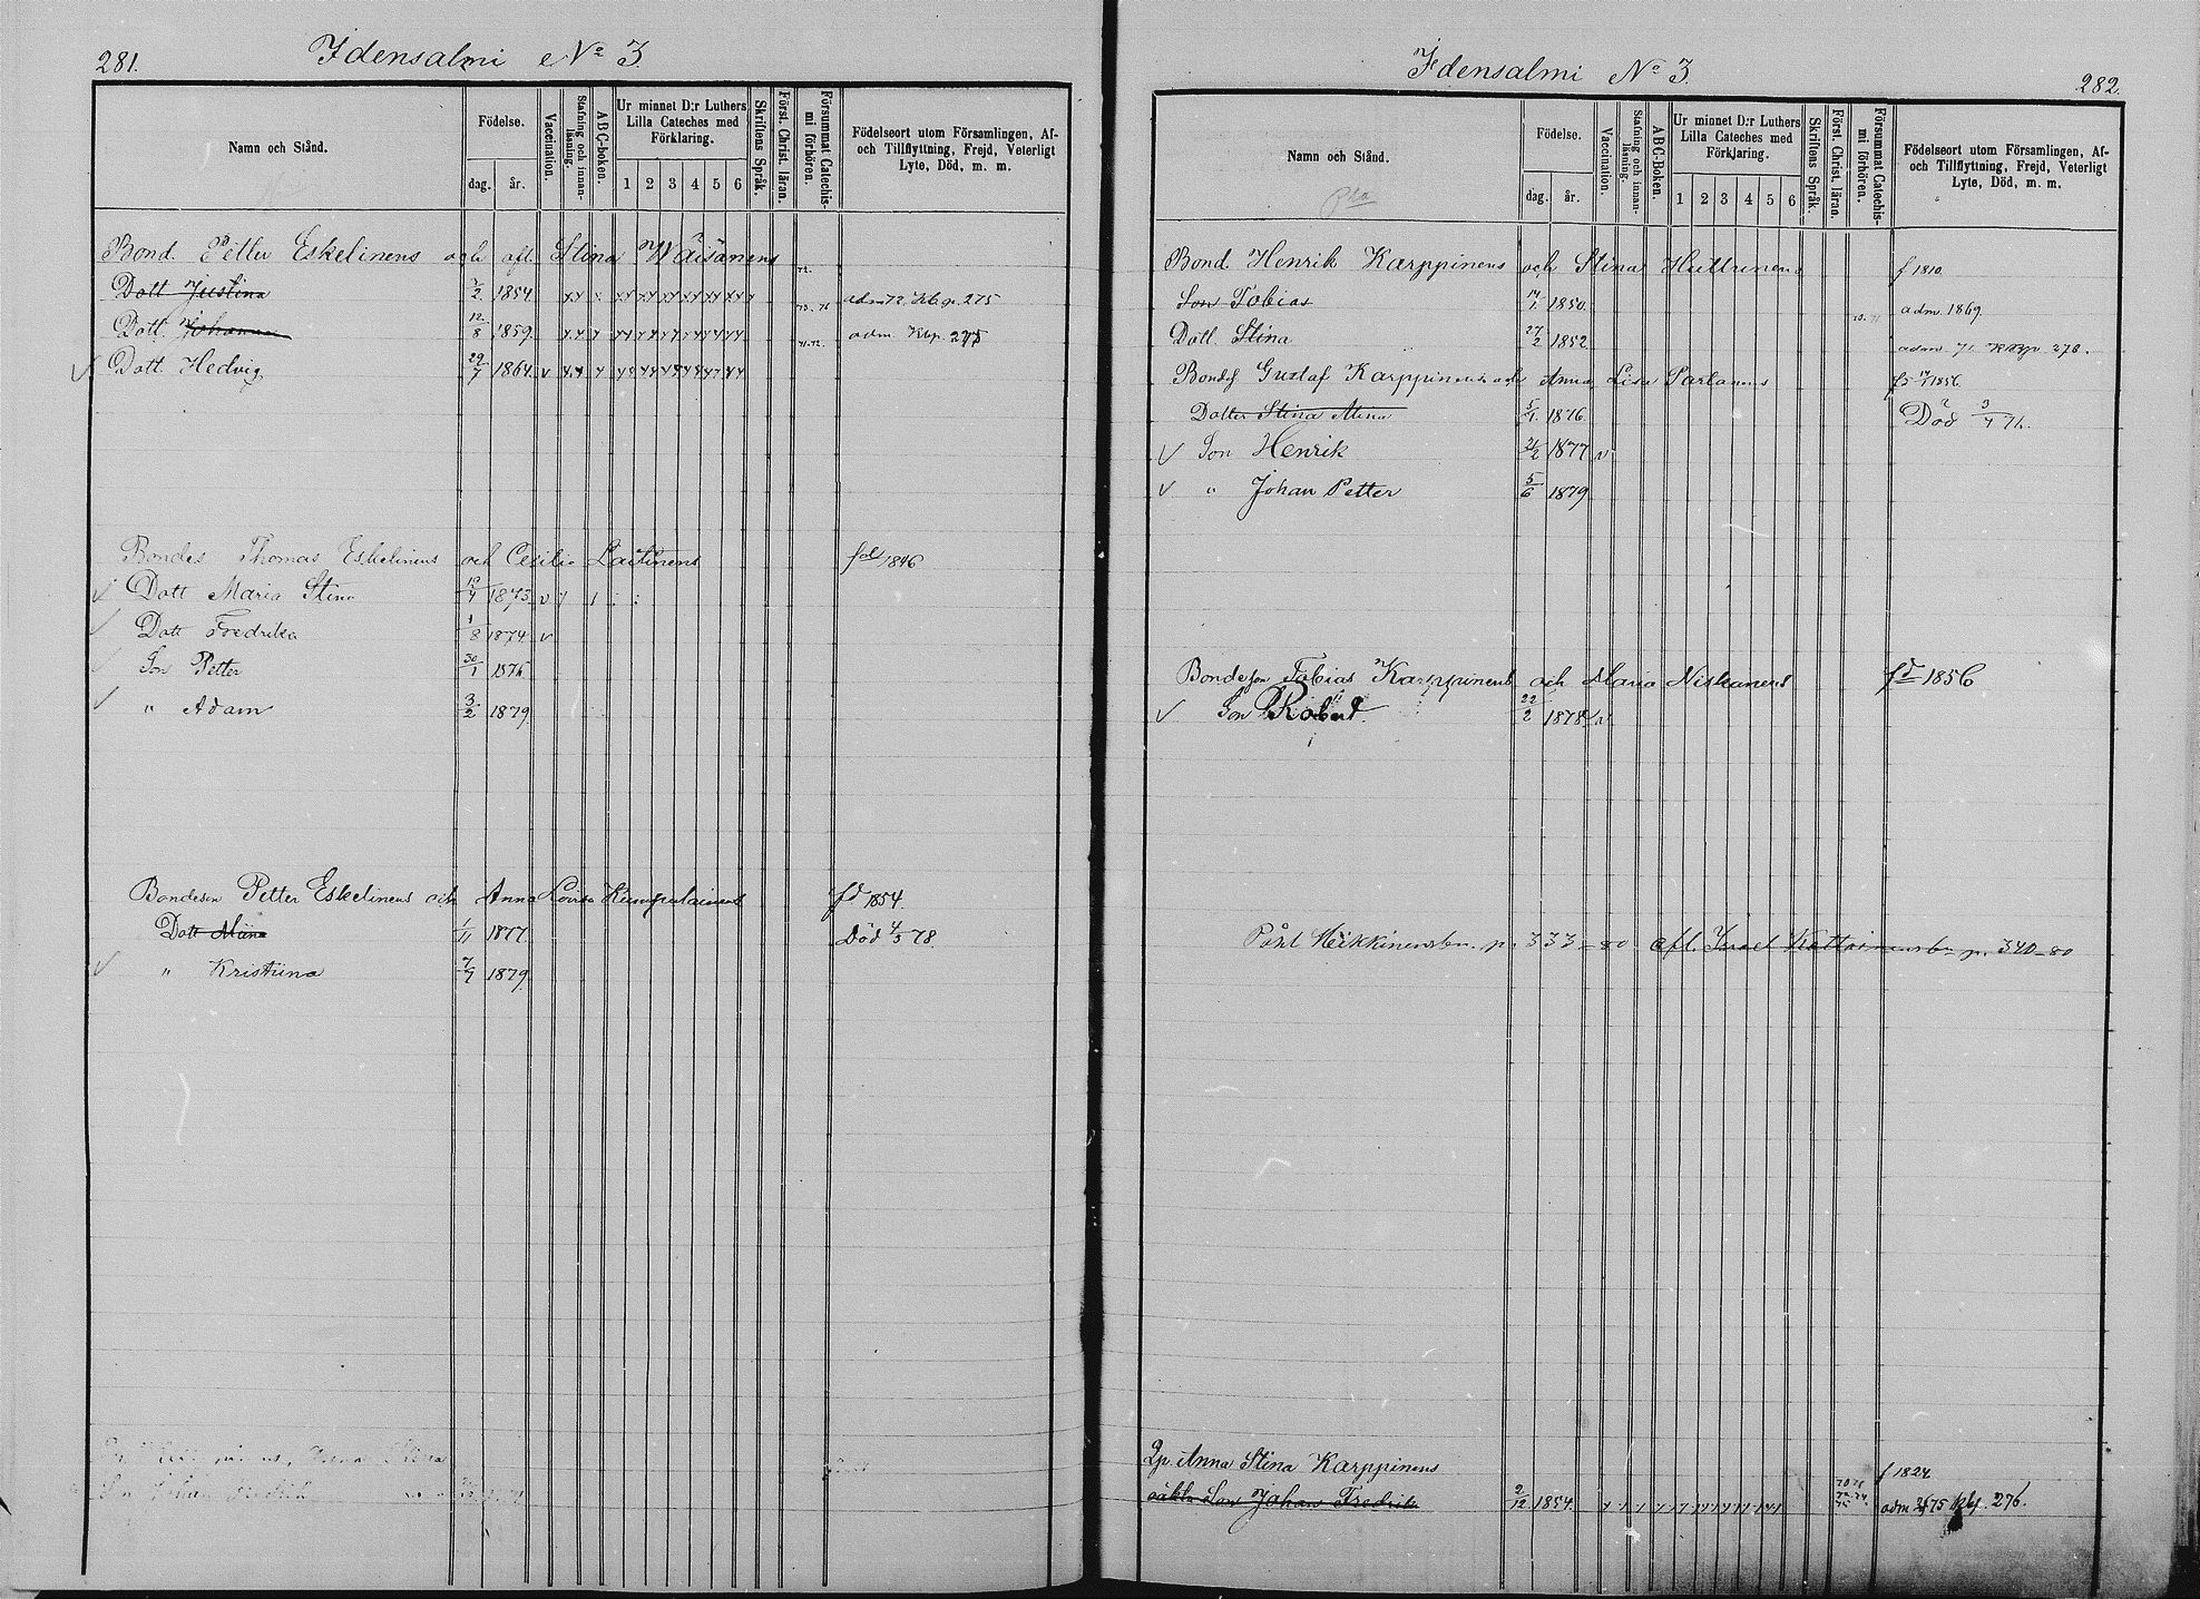 281.
Idensalmi No 3.
Namn och Stånd.
Födelse.
dag. år.
Vaccination.
Stafning och innanläsning.
ABC-boken.
Ur minnet D:r Luthers Lilla Cateches med Förklaring.
1 2 3 4 5 6
Skriftens Språk.
Först. Christ. läran.
Försummat Catechismi förhören.
Födelseort utom Församlingen, Af- och Tillflyttning, Frejd, Veterligt Lyte, Död, m. m.
Bond. Petter Eskelinens och afl. Stina Wäisänens
Dott Justina 2 1854 adm 72. Kb p. 275
Dott. Johanna 12/8 1859. 71.72. adm. Kbp. 275
Dott. Hedvig 29/7 1864
Bondes Thomas Eskelinens och Cesilia Laitinens 1846
Dott Maria Stina 1873
Dott Fredrika 1/8 1874
Son Petter 30/1 1876
" Adam 3/2 1879
Bondeson Petter Eskelinens och Anna Lovisa Kumpulainens fd 1854.
Dott Miina 1/11 1877 Död 4/5 78.
" Kristiina 7/7 1879
Idensalmi No 3.
282.
Namn och Stånd.
Födelse.
dag. år.
Vaccination.
Stafning och innanläsning.
ABC-Boken.
Ur minnet D:r Luthers Lilla Cateches med Förklaring.
1 2 3 4 5 6
Skriftens Språk.
Först. Christ. läran.
Försummat Catechismi förhören.
Födelseort utom Församlingen, Af- och Tillflyttning, Frejd, Veterligt Lyte, Död, m. m.
Bond. Henrik Karppinens och Stina Huttunens f 1810.
Son Tobias 14/1 1850. adm. 1869.
Dott. Stina 27/2 1852 adm 71 KBp 278.
Bondes Gustaf Karppinens och Anna Lisa Partanens 1856.
Dotter Stina Miina 5/1 1876. Död 3/4 76.
Son Henrik 1877
" Johan Petter 5/6 1879
Bondeson Tobias Karppinens och Maria Niskanens fd 1856
Son Robert. 22/2 1878
Påhl Heikkinensbn. p. 333-80 afl. Israel p. 340-80
Lp. Anna Stina Karppinens f 1824.
oäkta Son Johan Fredrik 2/12 1854. adm 75 Kbp. 276.